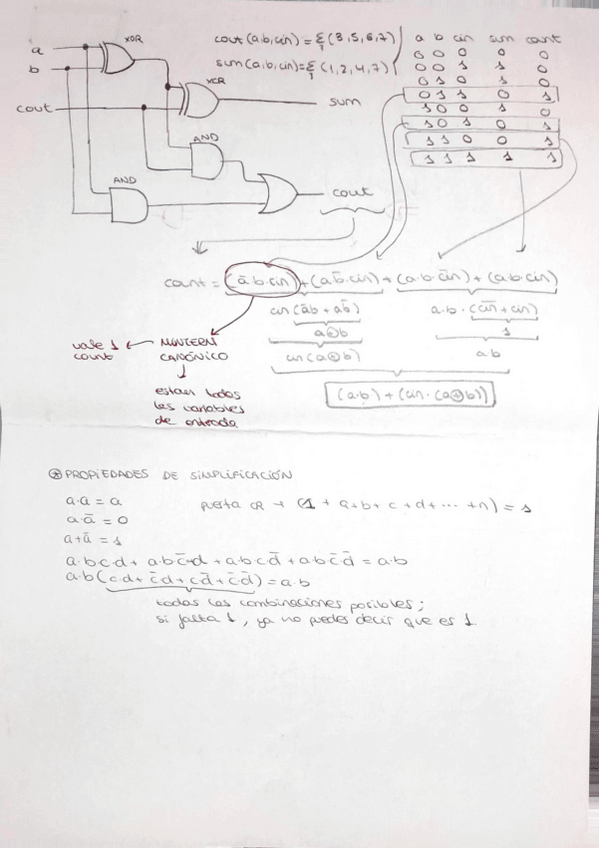 XOR
a
b
XOR
cout
sum
AND
AND
cout
cout(a,b,cin) = Σ (3,5,6,7)
1
sum(a,b,cin) = Σ (1,2,4,7)
1
a b cin sum cout
0 0 0 0 0
0 0 1 1 0
0 1 0 1 0
0 1 1 0 1
1 0 0 1 0
1 0 1 0 1
1 1 0 0 1
1 1 1 1 1
cout = (a̅·b·cin) + (a·b̅·cin) + (a·b·c̅i̅n̅) + (a·b·cin)
cin (a̅b + ab̅)
a·b·(c̅i̅n̅ + cin)
a⊕b
1
cin (a⊕b)
a·b
(a·b) + (cin·(a⊕b))
vale 1 ← MINTERM
cout CANÓNICO
↓
están todas
las variables
de entrada
⊛ PROPIEDADES DE SIMPLIFICACIÓN
a·a = a
puerta OR → (1 + a+b+c+d+...+n) = 1
a·a̅ = 0
a+a̅ = 1
a·b·c·d + a·b·c̅·d + a·b·c·d̅ + a·b·c̅·d̅ = a·b
a·b(c·d + c̅·d + c·d̅ + c̅·d̅) = a·b
todas las combinaciones posibles;
si falta 1, ya no puedes decir que es 1